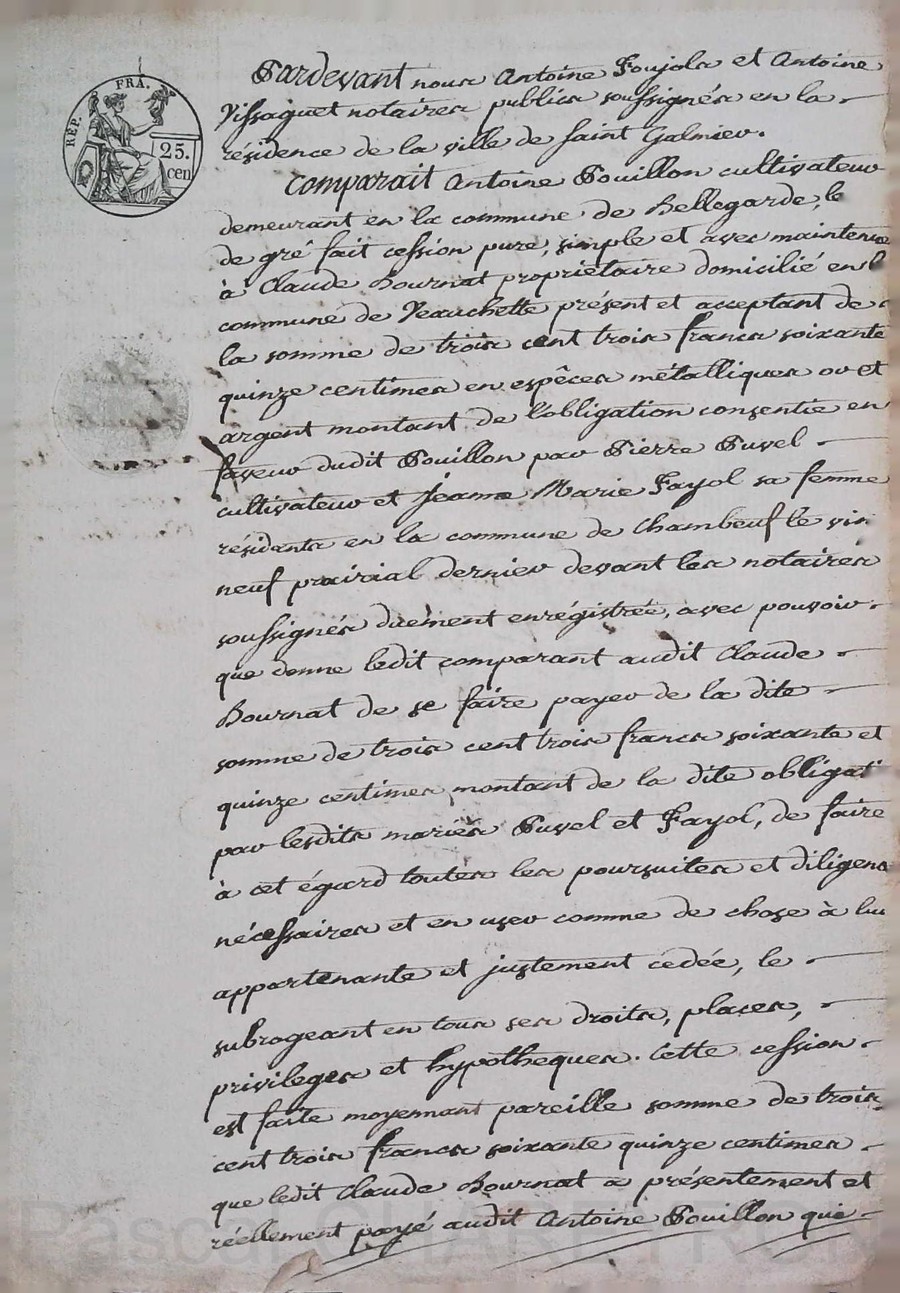 RÉP. FRA.
25.
cen
Pardevant nous Antoine Foujols et Antoine
Vissaguet notaires publics soussignés en la
résidence de la ville de saint Galmier.
Comparait Antoine Pouillon cultivateur
demeurant en la commune de Bellegarde, le
de gré fait cession pure, simple et avec maintenue
à Claude Bournat propriétaire domicilié en
commune de Veauchette présent et acceptant de
la somme de trois cent trois francs soixante
quinze centimes en espêces métalliques or et
argent montant de l'obligation consentie en
faveur dudit Pouillon par Pierre Puvel
cultivateur et Jeanne Marie Fayol sa femme
résidants en la commune de Chambeuf le vin
neuf prairial dernier devant les notaires
soussignés duement enrégistrée, avec pouvoir
que donne ledit comparant audit Claude
Bournat de se faire payer de la dite
somme de trois cent trois francs soixante et
quinze centimes montant de la dite obligati
par lesdits mariés Puvel et Fayol, de faire
à cet égard toutes les poursuites et diligenc
nécessaires et en user comme de chose à lui
appartenante et justement cédée, le
subrogeant en tous ses droits, places,
privileges et hypotheques. Cette cession
est faite moyennant pareille somme de trois
cent trois francs soixante quinze centimes
que ledit Claude Bournat a présentement et
réellement payé audit Antoine Pouillon qui